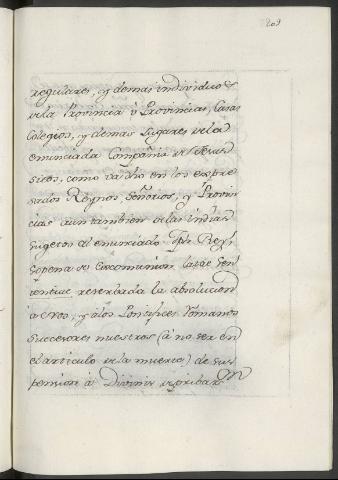 209
regulares, y demas individuos
de la Provincia ó Provincias, Casas
Colegios, y demas Lugares de la
enunciada Compañia de Jesus
sitos, como va dho en los expre
sados Reynos, Señorios, y Provin
cias aun tambien de las Indias
sugetos al enunciado Rey,
sopena de excomunion latae sen
tentiae reserbada la absolucion
a nos, y a los Pontifices Romanos
Successores nuestros (á no ser en
el articulo de la muerte) de sus
pension á Divinis